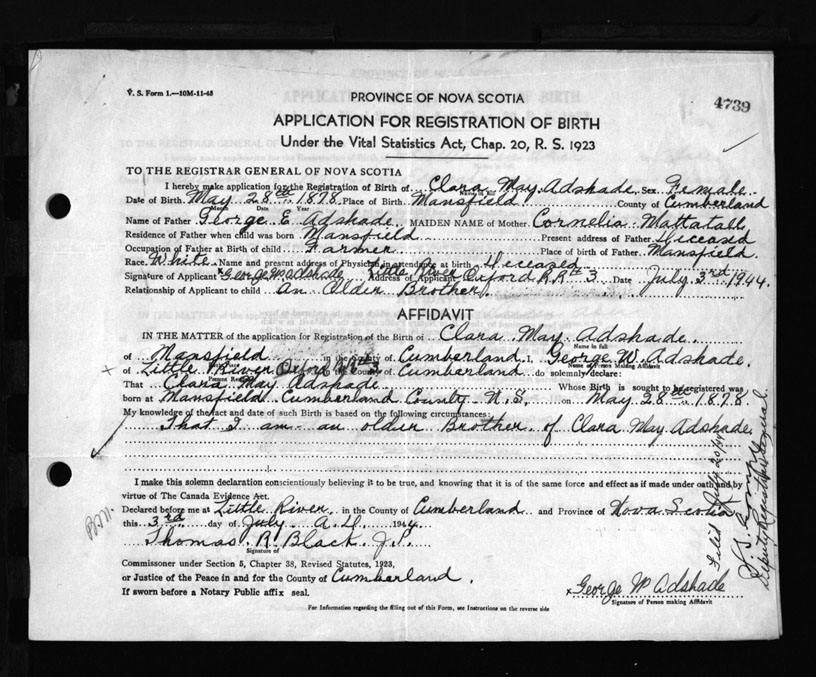 V. S. Form 1.—10M-11-43
4739
PROVINCE OF NOVA SCOTIA
APPLICATION FOR REGISTRATION OF BIRTH
Under the Vital Statistics Act, Chap. 20, R. S. 1923
TO THE REGISTRAR GENERAL OF NOVA SCOTIA
I hereby make application for the Registration of Birth of Clara May Adshade Sex Female
Date of Birth May 28th 1878 Place of Birth Mansfield County of Cumberland
Month Date Year
Name of Father George E Adshade MAIDEN NAME of Mother Cornelia Mattatall
Residence of Father when child was born Mansfield Present address of Father Deceased
Occupation of Father at Birth of child Farmer Place of birth of Father Mansfield
Race White Name and present address of Physician in attendance at birth Deceased
Signature of Applicant x George W Adshade Address of Applicant Little River Oxford RR # 3 Date July 3rd 1944
Relationship of Applicant to child An Older Brother
AFFIDAVIT
IN THE MATTER of the application for Registration of the Birth of Clara May Adshade
Name in full
of Mansfield in the County of Cumberland I, George W. Adshade
Name of Person Making Affidavit
x of Little River Oxford RR 3 in the County of Cumberland do solemnly declare:
Present Residence
That Clara May Adshade Whose Birth is sought to be registered was
born at Mansfield Cumberland County N.S. on May 28th 1878
My knowledge of the fact and date of such Birth is based on the following circumstances:
That I am an older Brother of Clara May Adshade.
I make this solemn declaration conscientiously believing it to be true, and knowing that it is of the same force and effect as if made under oath and by
virtue of The Canada Evidence Act.
Declared before me at Little River in the County of Cumberland and Province of Nova Scotia
this 3rd day of July A.D. 1944
Thomas R Black J.P.
Signature of
Commissioner under Section 5, Chapter 38, Revised Statutes, 1923,
or Justice of the Peace in and for the County of Cumberland.
If sworn before a Notary Public affix seal.
x George W Adshade
Signature of Person making Affidavit
For Information regarding the filling out of this Form, see Instructions on the reverse side
Filed July 20/44
Deputy Registrar General